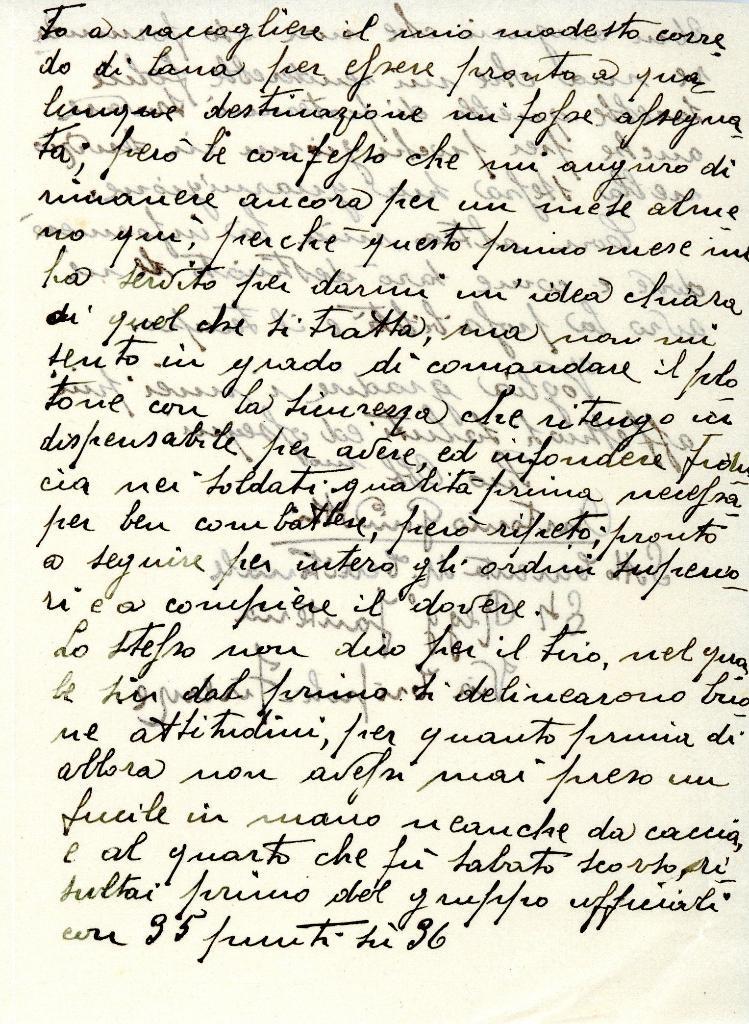 to a raccogliere il mio modesto corre
do di lana per essere pronto a qua
lunque destinazione mi fosse assegna
ta; però le confesso che mi auguro di
rimanere ancora per un mese alme
no qui, perchè questo primo mese mi
ha servito per darmi un'idea chiara
di quel che si tratta, ma non mi
sento in grado di comandare il plo
tone con la sicurezza che ritengo in
dispensabile per avere, ed infondere fidu
cia nei soldati: qualità prima necessa
per ben combattere, però ripeto; pronto
a seguire per intero gli ordini superio
ri e a compiere il dovere.
Lo stesso non dico per il tiro, nel qua
le sin dal primo si delinearono buo
ne attitudini, per quanto prima di
allora non avessi mai preso un
fucile in mano neanche da caccia,
e al quarto che fù sabato scorso, ri
sultai primo del gruppo ufficiali
con 35 punti sù 36